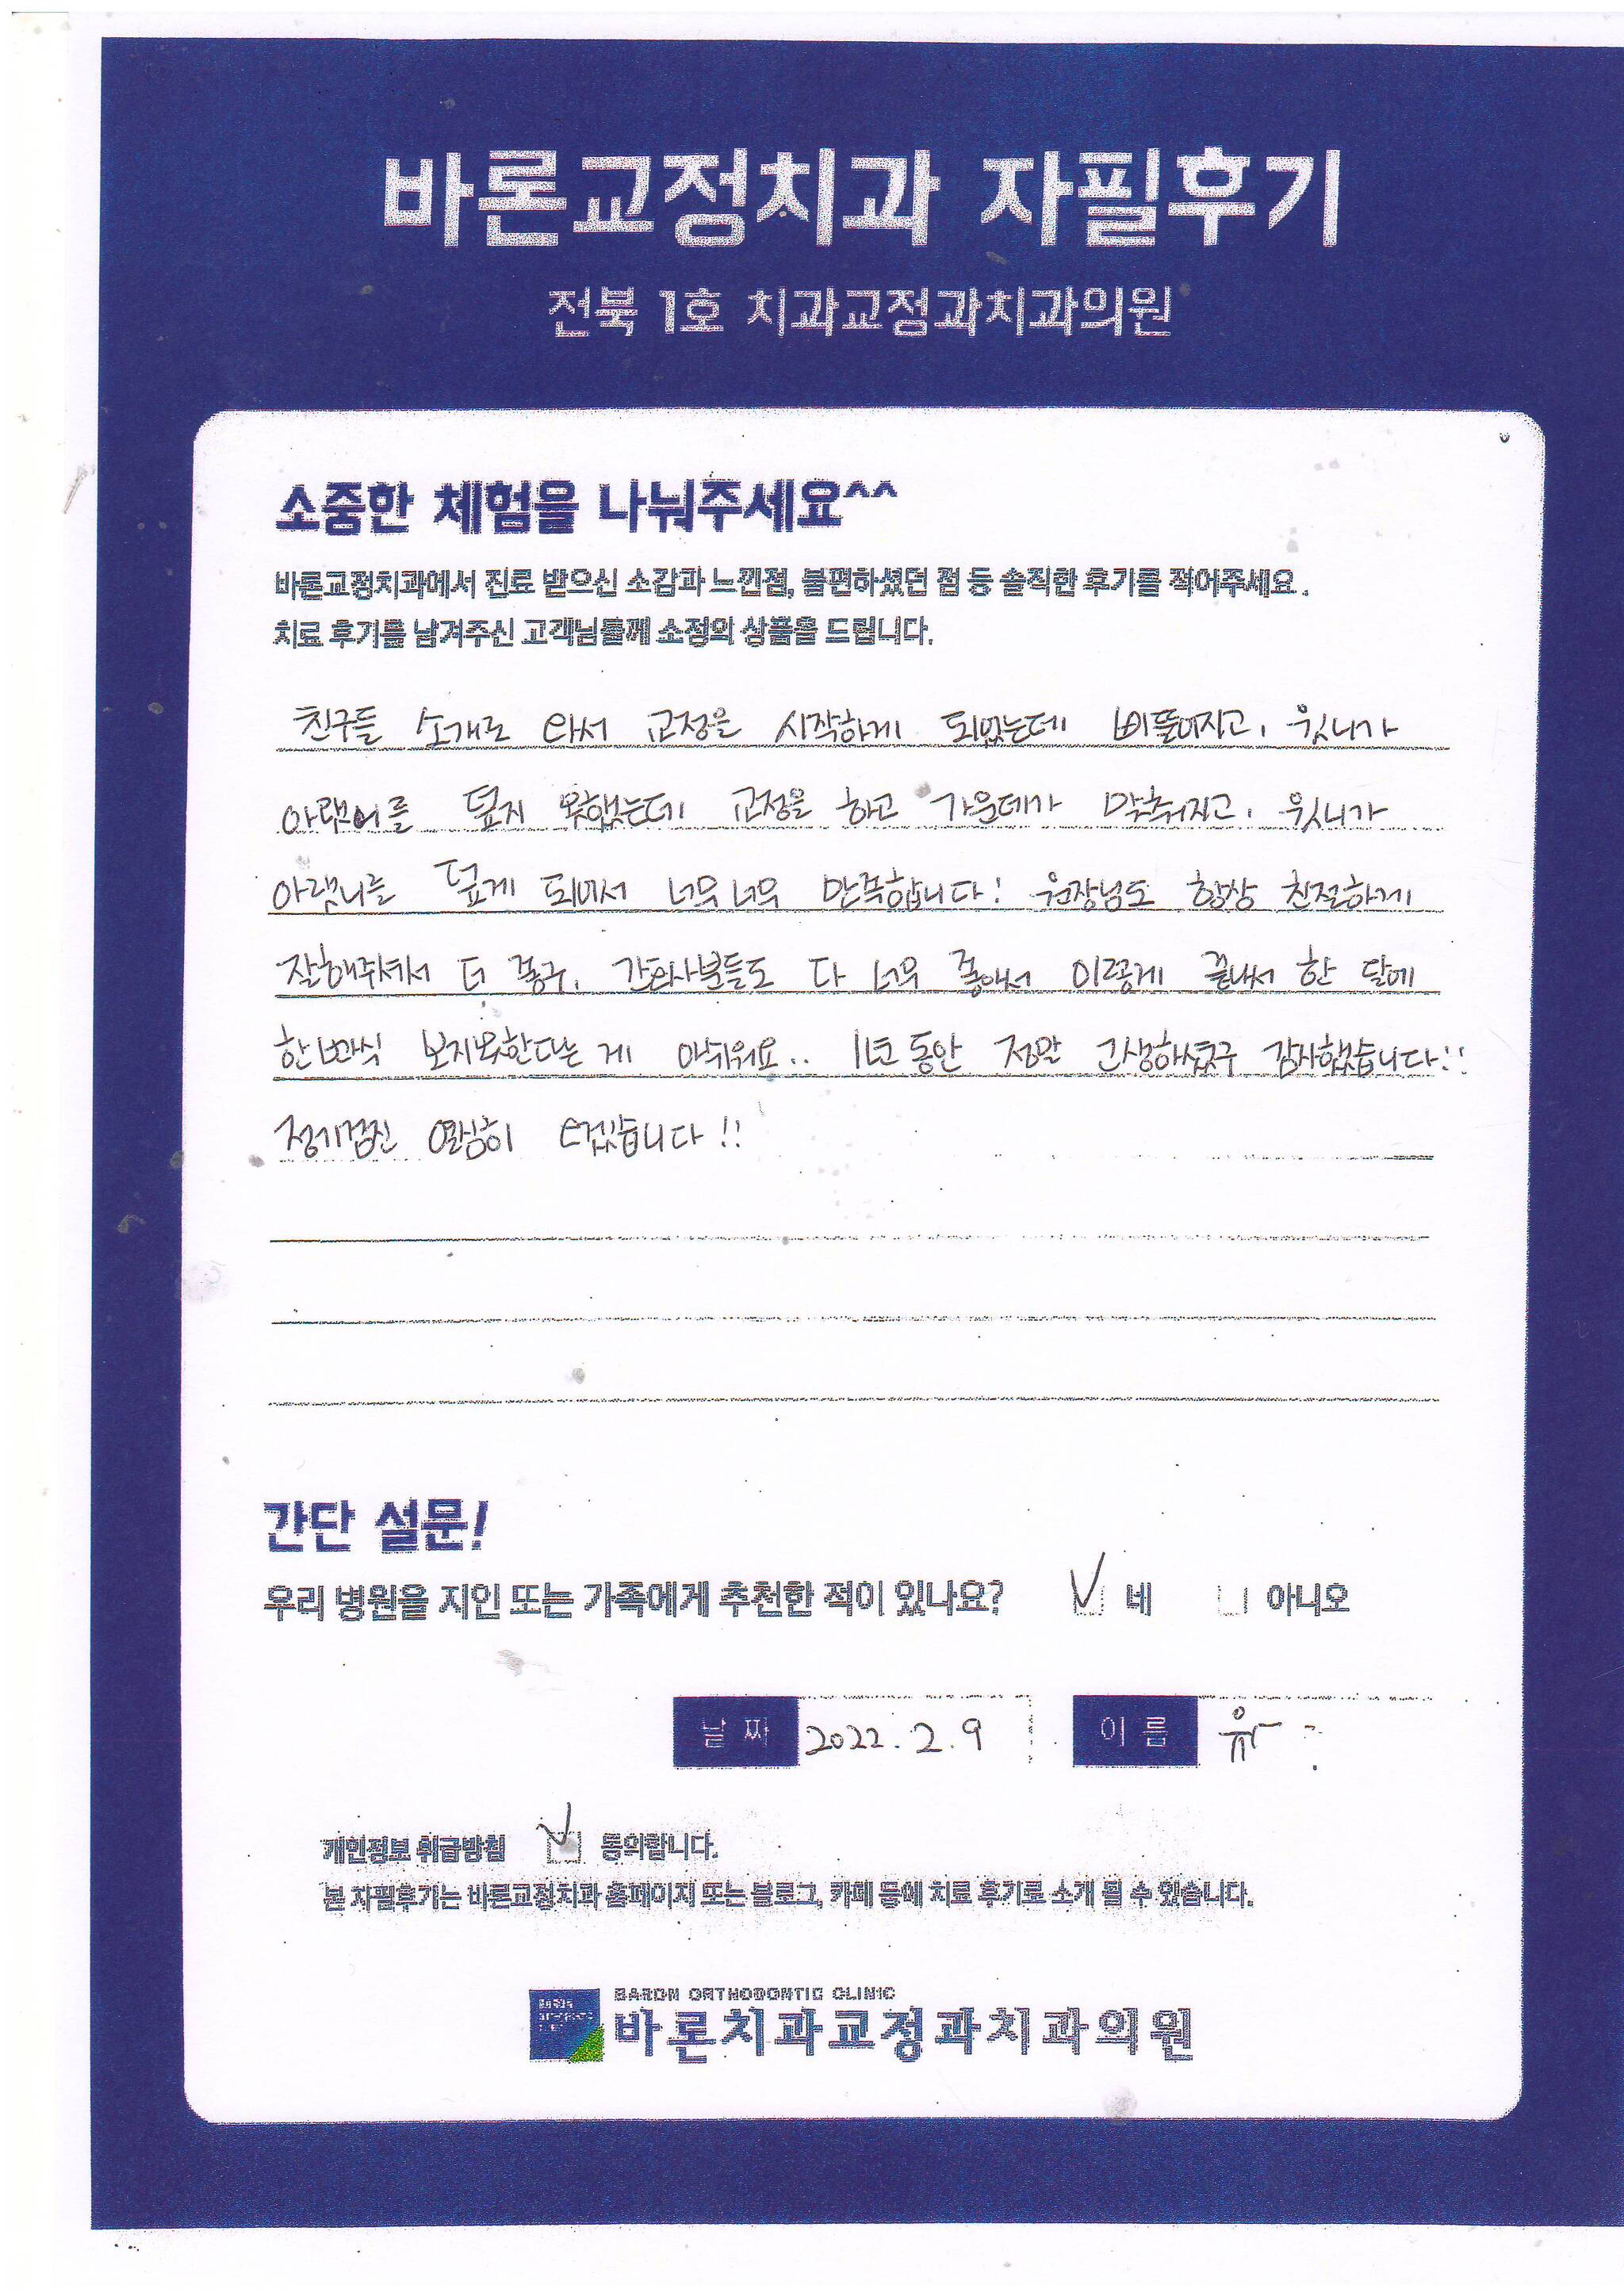 바론교정치과 자필후기
전북 1호 치과교정과치과의원
소중한 체험을 나눠주세요^^
바론교정치과에서 진료 받으신 소감과 느낀점, 불편하셨던 점 등 솔직한 후기를 적어주세요.
치료 후기를 남겨주신 고객님들께 소정의 상품을 드립니다.
친구들 소개로 와서 교정을 시작하게 되었는데 삐뚤어지고, 윗니가
아랫니를 덮지 못했는데 교정을 하고 가운데가 맞춰지고, 윗니가
아랫니를 덮게 되어서 너무너무 만족합니다! 원장님도 항상 친절하게
잘해주셔서 더 좋구, 간호사분들도 다 너무 좋아서 이렇게 끝내서 한 달에
한번씩 보지못한다는 게 아쉬워요.. 1년 동안 정말 고생하셨구 감사했습니다!!
정기검진 열심히 오겠습니다!!
간단 설문!
우리 병원을 지인 또는 가족에게 추천한 적이 있나요? 네 아니오
날 짜 2022.2.9 이 름 유
개인정보 취급방침 동의합니다.
본 자필후기는 바론교정치과 홈페이지 또는 블로그, 카페 등에 치료 후기로 소개 될 수 있습니다.
BARON ORTHODONTIC CLINIC
바론치과교정과치과의원